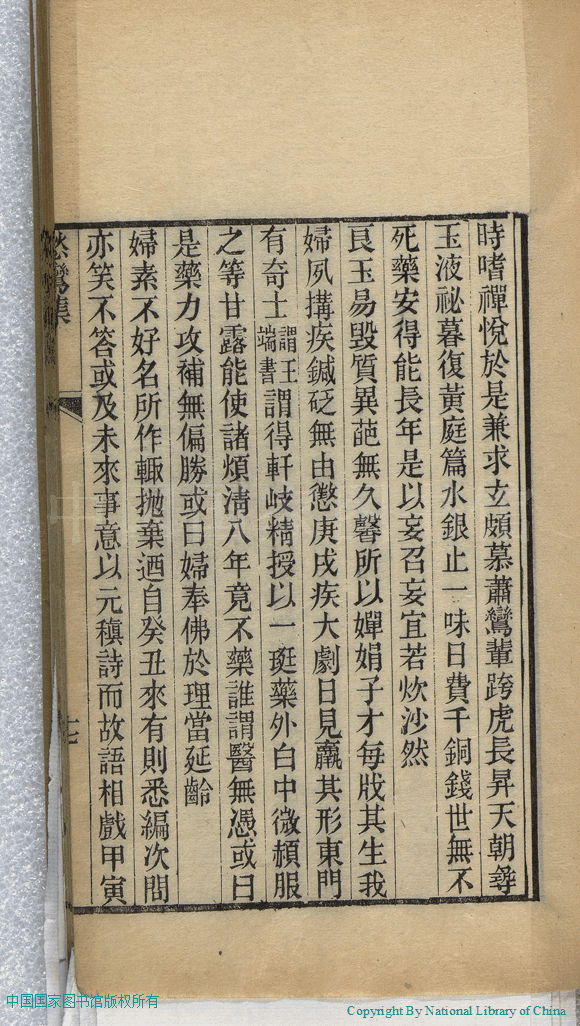 時嗜禪悅於是兼求玄頗慕蕭鸞輩跨虎長昇天朝尋
玉液祕暮復黃庭篇水銀止一味日費千銅錢世無不
死藥安得能長年是以妄召妄宜若炊沙然
良玉易毀質異葩無久馨所以嬋娟子才每戕其生我
婦夙搆疾鍼砭無由懲庚戌疾大劇日見羸其形東門
有奇士謂王端書謂得軒岐精授以一珽藥外白中微赬服
之等甘露能使諸煩清八年竟不藥誰謂醫無憑或曰
是藥力攻補無偏勝或曰婦奉佛於理當延齡
婦素不好名所作輙拋棄迺自癸丑來有則悉編次問
亦笑不答或及未來事意以元稹詩而故語相戲甲寅
愁鸞集
中国国家图书馆版权所有
Copyright By National Library of China